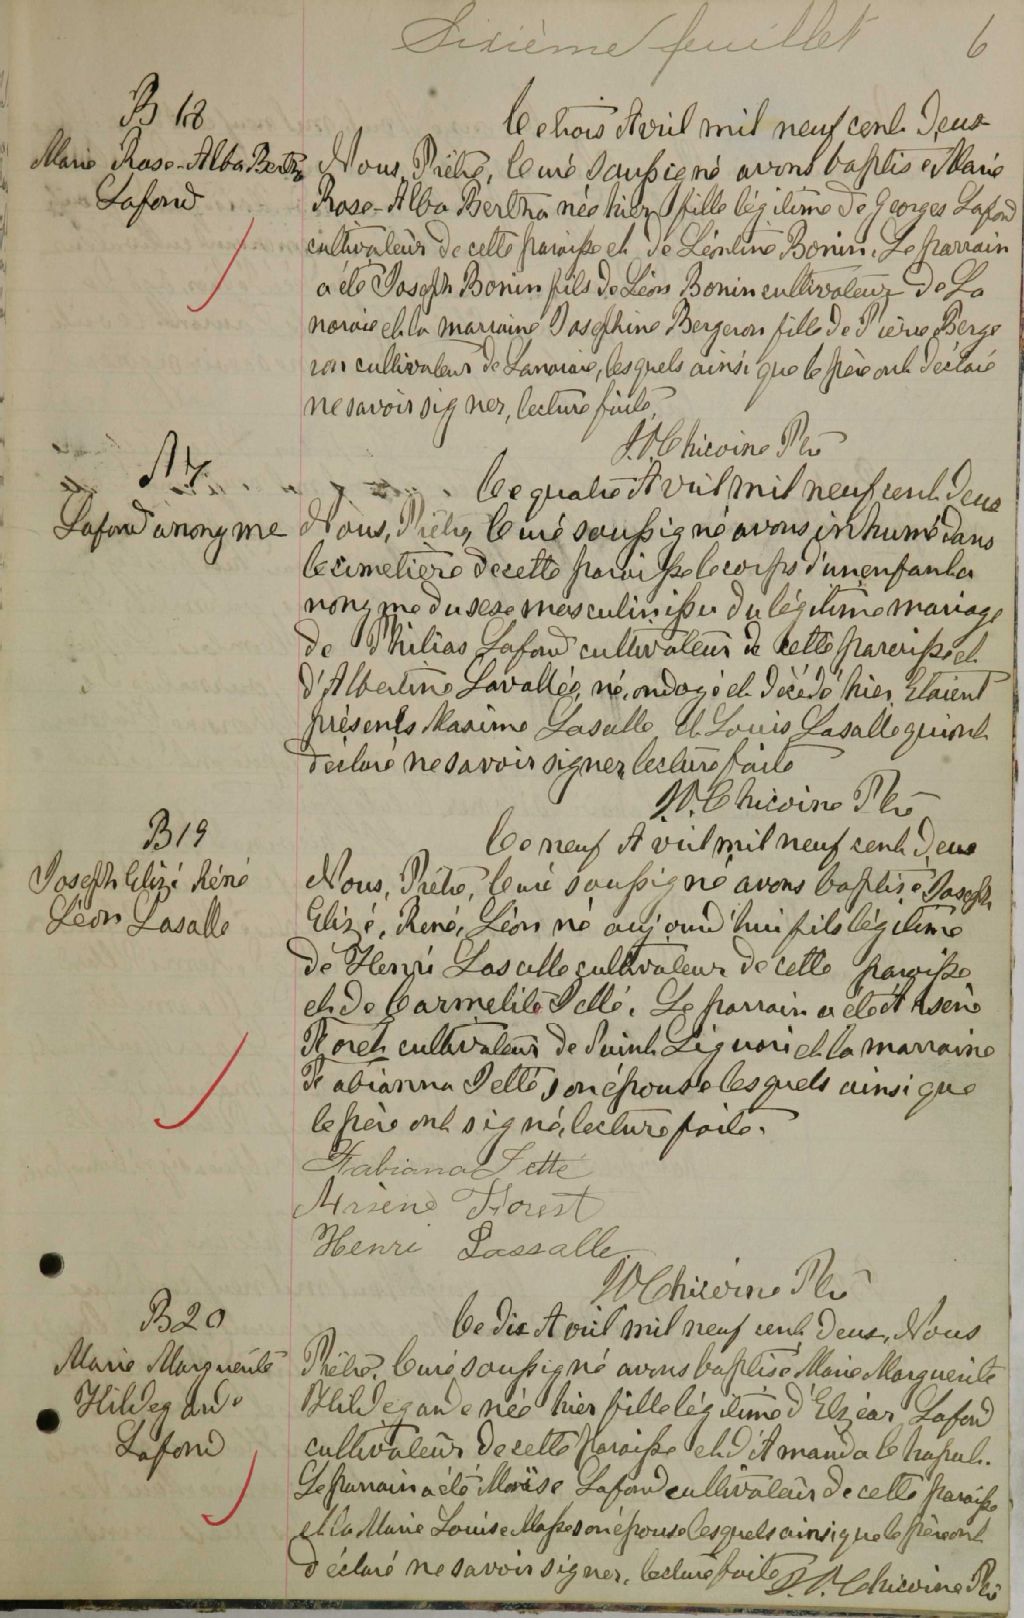 Sixième feuillet 6
B 18
Marie Rose-Alba Bertha
Lafond
Le trois Avril mil neuf cent deux
Nous, Prêtre, Curé soussigné avons baptisé Marie
Rose-Alba Bertha née hier, fille légitime de Georges Lafond
cultivateur de cette paroisse et de Léontine Bonin. Le parrain
a été Joseph Bonin fils de Léon Bonin cultivateur de La
noraie et la marraine Josephine Bergeron fille de Pierre Berge
ron cultivateur de Lanoraie, lesquels ainsi que le père ont déclaré
ne savoir signer, lecture faite.
Chicoine Ptre
Lafond anonyme
Le quatre Avril mil neuf cent deux
Nous, Prêtre, Curé soussigné avons inhumé dans
le cimetière de cette paroisse le corps d'un enfant a
nonyme du sexe masculin issu du légitime mariage
de Philias Lafond cultivateur de cette paroisse et
d'Albertine Lavallée, né, ondoyé et décédé hier. Etaient
présents Maxime Lasalle et Louis Lasalle qui ont
déclaré ne savoir signer, lecture faite
Chicoine Ptre
B 19
Joseph Elizé Réné
Léon Lasalle
Le neuf Avril mil neuf cent deux
Nous, Prêtre, Curé soussigné avons baptisé Joseph
Elizé, René, Léon né aujourd'hui fils légitime
de Henri Lasalle cultivateur de cette paroisse
et de Carmelite Jetté. Le parrain a été Arsène
Foret cultivateur de Saint Liguori et la marraine
Fabianna Jetté son épouse lesquels ainsi que
le père ont signé, lecture faite.
Fabiana Jetté
Arsène Forest
Henri Lassalle
Chicoine Ptre
B 20
Marie Marguerite
Hildegarde
Lafond
Le dix Avril mil neuf cent deux, Nous
Prêtre, Curé soussigné avons baptisé Marie Marguerite
Hildegande née hier fille légitime d'Elzéar Lafond
cultivateur de cette paroisse et d'Amanda
Le parrain a été Moïse Lafond cultivateur de cette paroisse
et la Marie Louise Masse son épouse lesquels ainsi que le père ont
déclaré ne savoir signer, lecture faite Chicoine Ptre